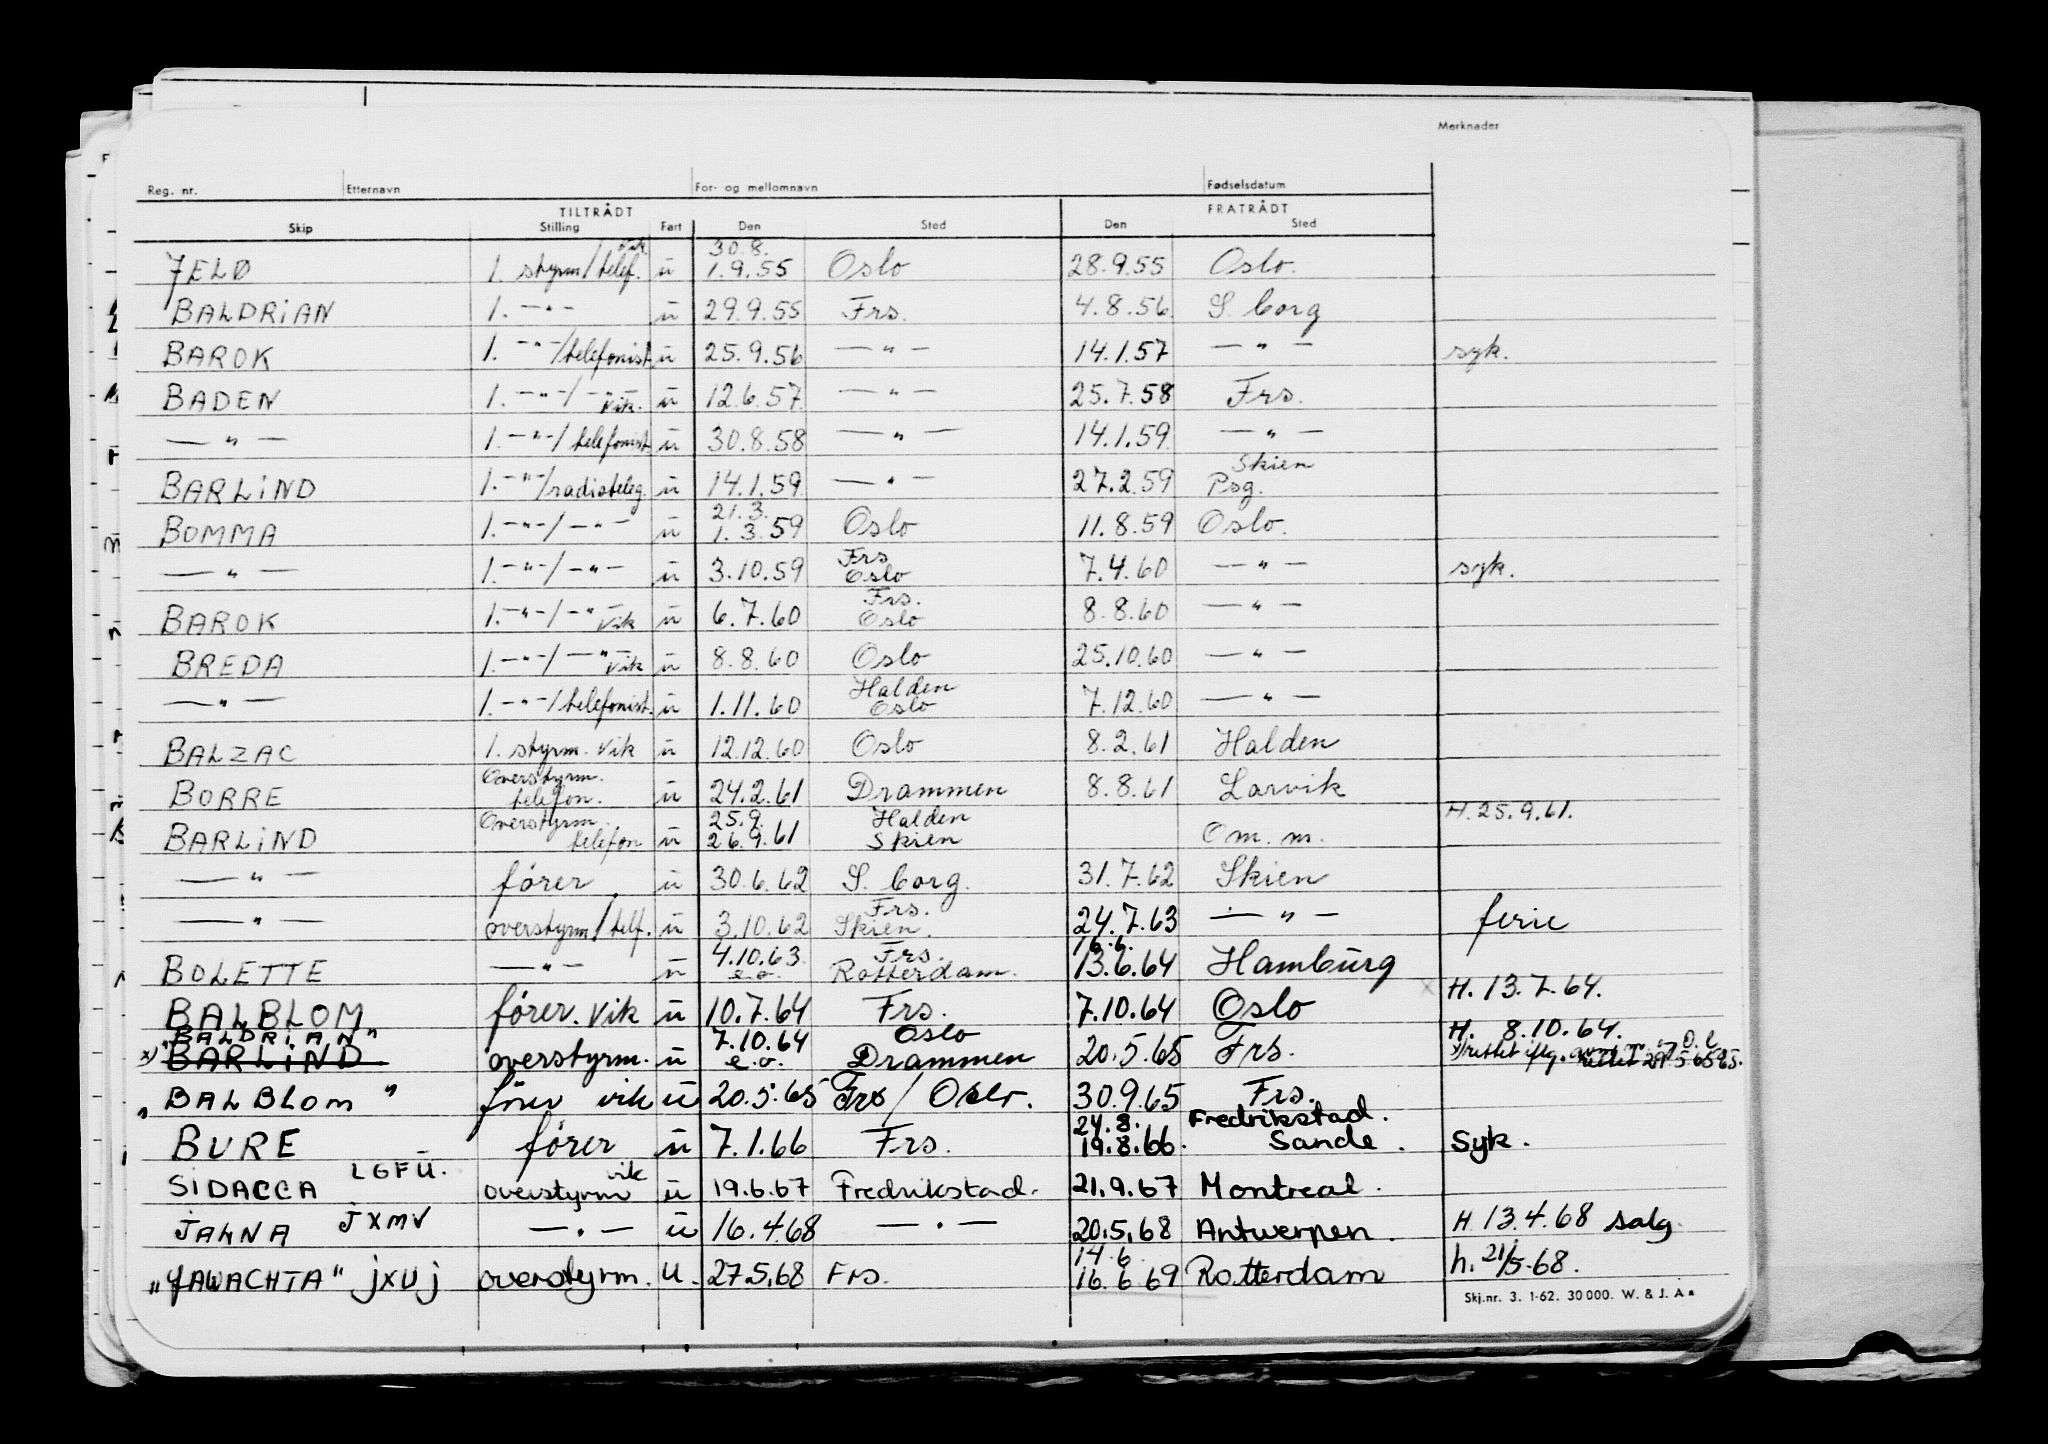 Merknader
Reg. nr. Etternavn For- og mellomnavn Fødselsdatum
TILTRÅDT FRATRÅDT
Skip Stilling Fart Den Sted Den Sted
vik. 30.8.
JELØ 1. styrm/telef. u 1.9.55 Oslo 28.9.55 Oslo.
BALDRIAN 1. —"— u 29.9.55 Frs. 4.8.56 S. borg
BAROK 1. —"—/telefonist u 25.9.56 —"— 14.1.57 —"— syk.
BADEN 1. —"—/—"— vik. u 12.6.57 —"— 25.7.58 Frs.
—"— 1. —"—/telefonist u 30.8.58 —"— 14.1.59 —"—
Skien
BARLIND 1. —"—/radioteleg. u 14.1.59 —"— 27.2.59 Psg.
21.3.
BOMMA 1. —"—/—"— u 1.3.59 Oslo 11.8.59 Oslo.
Frs
—"— 1. —"—/—"— u 3.10.59 Oslo 7.4.60 —"— syk.
Frs.
BAROK 1. —"—/—"— vik u 6.7.60 Oslo 8.8.60 —"—
BREDA 1. —"—/—"— vik u 8.8.60 Oslo 25.10.60 —"—
Halden
—"— 1. —"—/telefonist. u 1.11.60 Oslo 7.12.60 —"—
BALZAC 1. styrm. vik u 12.12.60 Oslo 8.2.61 Halden
Overstyrm.
BORRE telefon. u 24.2.61 Drammen 8.8.61 Larvik
Overstyrm. 25.9. Halden H. 25.9.61.
BARLIND telefon u 26.9.61 Skien Om. m.
—"— fører u 30.6.62 S. borg. 31.7.62 Skien
Frs.
—"— overstyrm/telf. u 3.10.62 Skien. 24.7.63 —"— ferie
4.10.63 Frs. 16.6.
BOLETTE —"— u e.o. Rotterdam. 13.6.64 Hamburg
H. 13.7.64.
BALBLOM fører. vik u 10.7.64 Frs. 7.10.64 Oslo
"BALDRIAN" 7.10.64 Oslo H. 8.10.64.
x) BARLIND overstyrm. u e.o. Drammen 20.5.65 Frs. x) rettet iflg.
"BALBLOM" fører vik u 20.5.65 Frs/Oslo. 30.9.65 Frs.
24.8. Fredrikstad.
BURE fører u 7.1.66 Frs. 19.8.66. Sande. Syk.
SIDACCA LGFU. overstyrm vik u 19.6.67 Fredrikstad. 21.9.67 Montreal.
JALNA JXMV —"— u 16.4.68 —"— 20.5.68 Antwerpen. H. 13.4.68 salg.
14.6
"JAWACHTA" JXUJ overstyrm. u. 27.5.68 Frs. 16.6.69 Rotterdam h. 21/5-68.
Skj.nr. 3. 1-62. 30000. W. & J. A